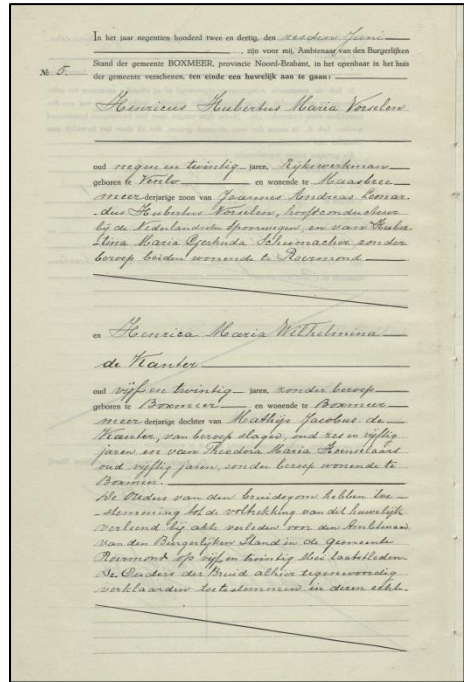 In het jaar negentien honderd twee en dertig, den zesden Juni
, zijn voor mij, Ambtenaar van den Burgerlijken
Stand der gemeente BOXMEER, provincie Noord-Brabant, in het openbaar in het huis
№ 5. der gemeente verschenen, ten einde een huwelijk aan te gaan:
Henricus Hubertus Maria Vorselen
oud negen en twintig jaren, Rijkswerkman
geboren te Venlo en wonende te Maasbree
meer-derjarige zoon van Joannes Andreas Leonar-
dus Hubertus Vorselen, hoofdconducteur
bij de Nederlandsche Spoorwegen, en van Huber-
tina Maria Gertruda Schumacher zonder
beroep beiden wonende te Roermond
en Henrica Maria Wilhelmina
de Kanter
oud vijf en twintig jaren, zonder beroep
geboren te Boxmeer en wonende te Boxmeer
meer derjarige dochter van Mathijs Jacobus de
Kanter, van beroep slager, oud zes en vijftig
jaren en van Theodora Maria Henselaars
oud vijftig jaren, zonder beroep wonende te
Boxmeer.
De Ouders van den bruidegom hebben toe-
stemming tot de voltrekking van dit huwelijk
verleend bij akte verleden voor den Ambtenaar
van den Burgerlijken Stand in de gemeente
Roermond op vijf en twintig Mei laatstleden.
De Ouders der Bruid alhier tegenwoordig
verklaarden toe te stemmen in dezen echt.